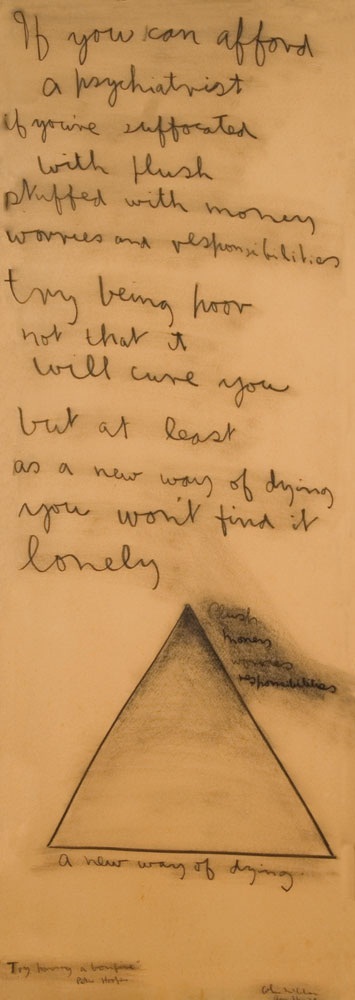 If you can afford
a psychiatrist
if you're suffocated
with plush
stuffed with money
worries and responsibilities
try being poor
not that it
will cure you
but at least
as a new way of dying
you won't find it
lonely
Plush
money
worries
responsibilities
a new way of dying.
'Try having a bonfire'
Peter